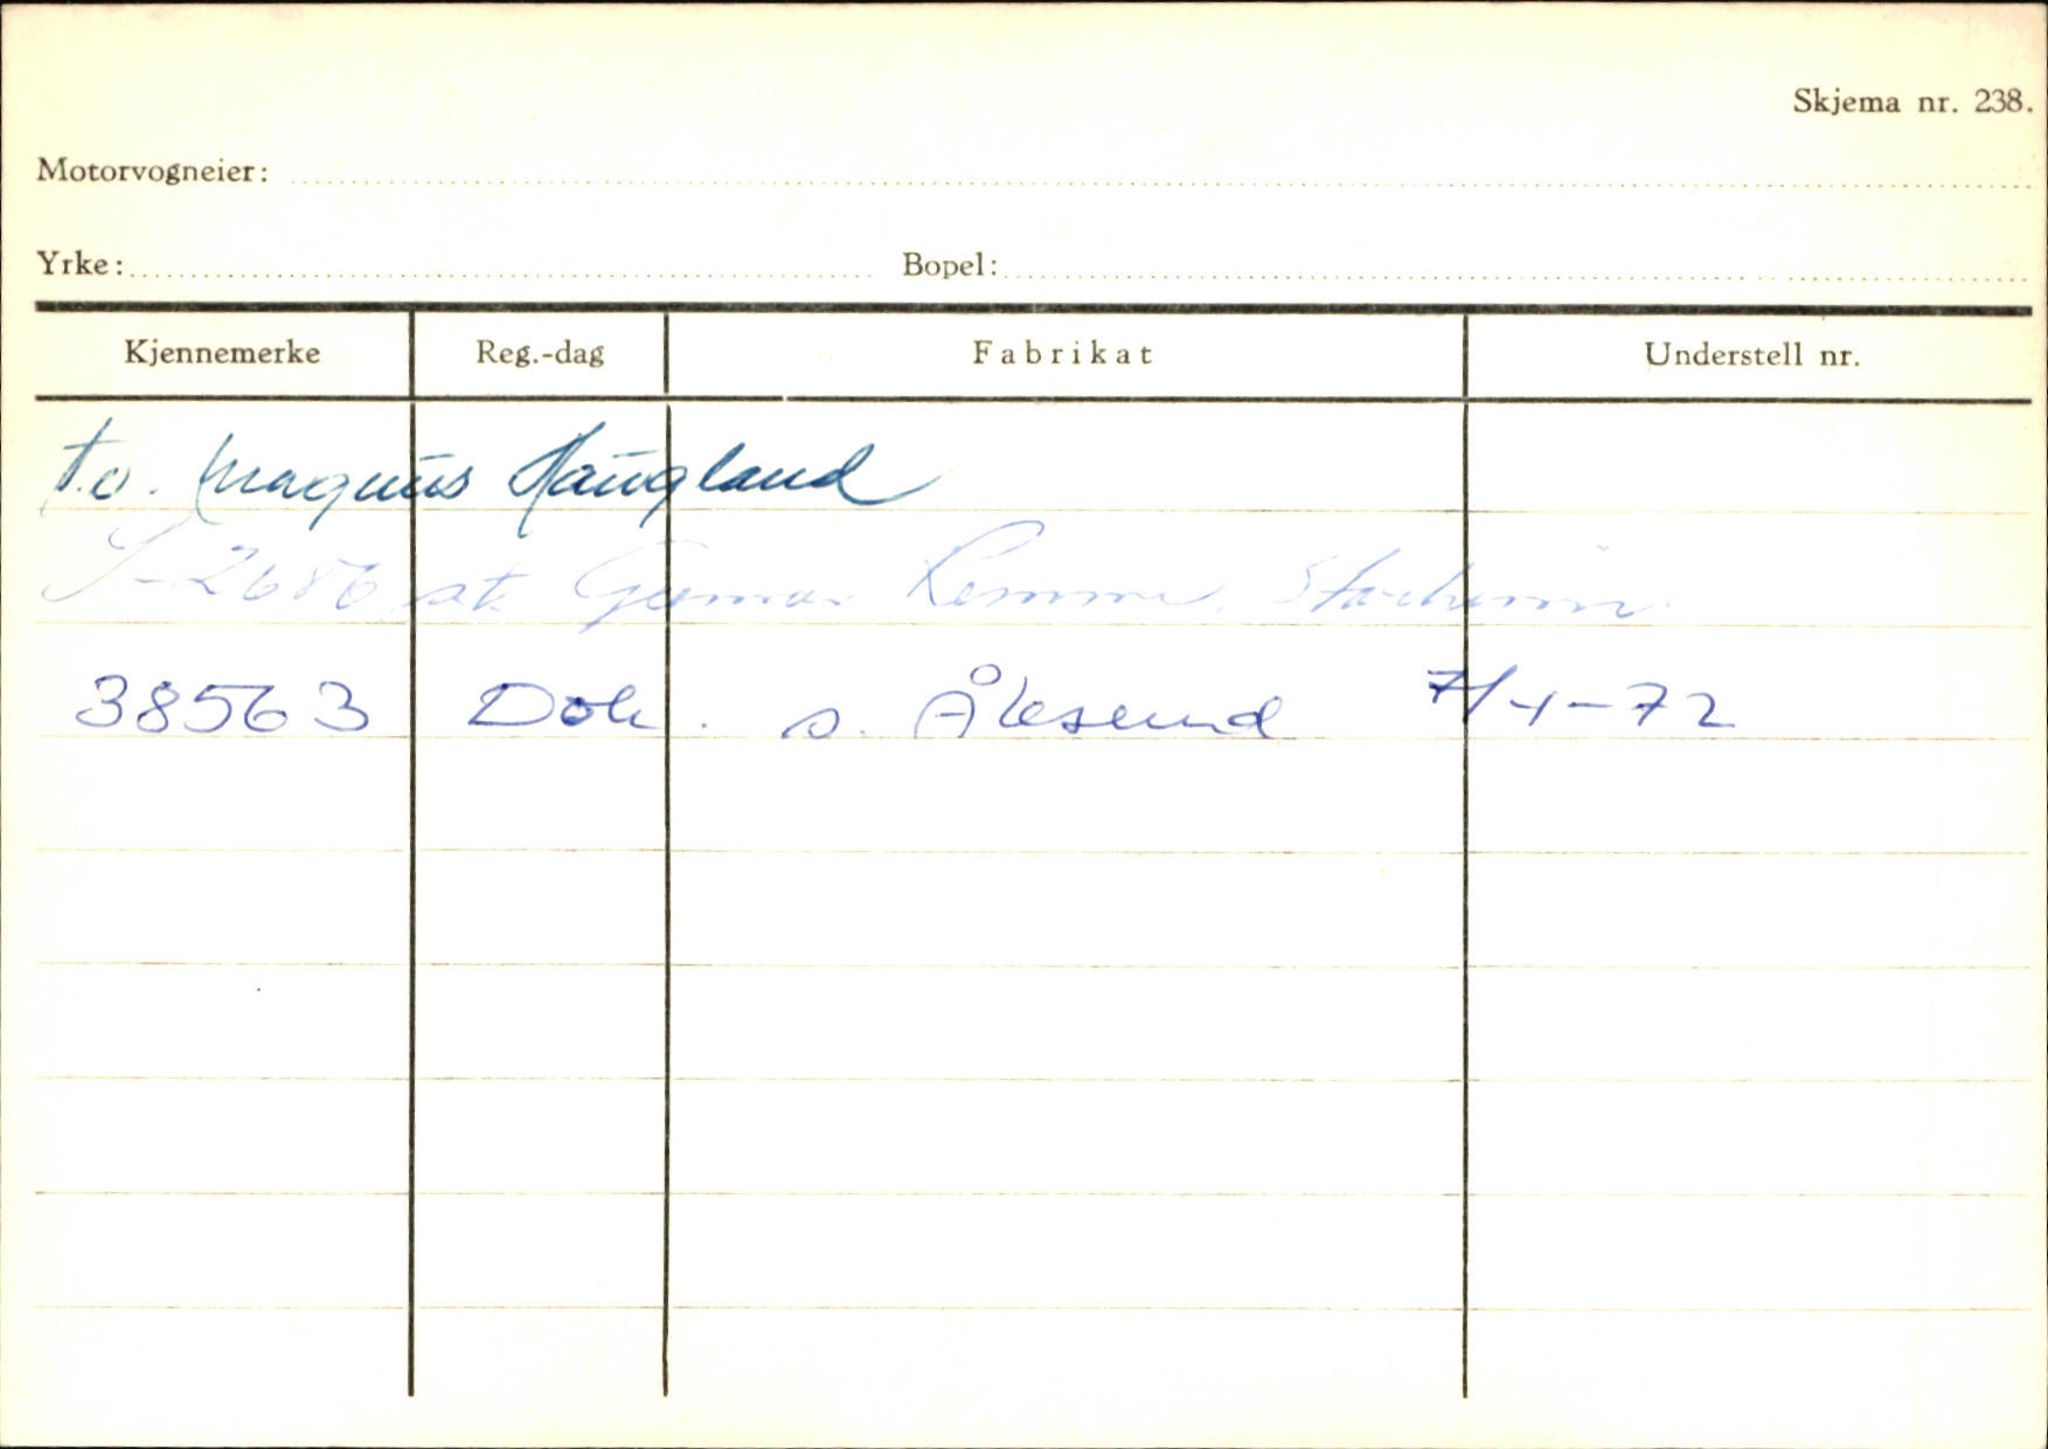 Skjema nr. 238.
Motorvogneier:
Yrke: Bopel:
Kjennemerke Reg.-dag Fabrikat Understell nr.
t.o. Magnus Haugland
S-2686 st. Gunnar
38563 Dok. s. Ålesund 7/4-72